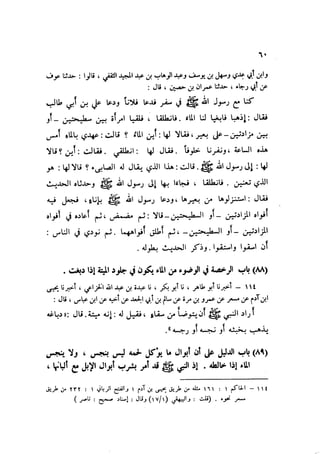 ٦٠
وابن أبي عدي وسهل بن يوسف وعبد الوهاب بن عبد المجيد الثقفي ، قالوا : حدثنا عوف
عن أبي رجاء ، حدثنا عمران بن حصين ، قال :
كنا مع رسول الله ﷺ في سفر فدعا فلاناً ودعا علي بن أبي طالب
فقال : إذهبا فابغيا لنا الماء . فانطلقا ، فلقيا امرأة بين سطيحتين – أو
بين مزادتين – على بعير ، فقالا لها : أين الماء ؟ قالت : عهدي بالماء أمس
هذه الساعة ، ونفرنا خلوفاً . فقالا لها : انطلقي . فقالت : أين ؟ قالا
لها : إلى رسول الله ﷺ . قالت : هذا الذي يقال له الصابىء ؟ قالا : هو
الذي تعنين . فانطلقا ، فجاءا بها إلى رسول الله ﷺ وحدثاه الحديث
فقال : استنزلوها من بعيرها ، ودعا رسول الله ﷺ بإناء ، فجعل فيه
أفواه المزادتين – أو السطيحتين – قالا : ثم مضمض ، ثم أعاده في أفواه
المزادتين – أو السطيحتين – ، ثم أطلق أفواههما . ثم نودي في الناس :
أن اسقوا واستقوا . وذكر الحديث بطوله .
(٨٨) باب الرخصة في الوضوء من الماء يكون في جلود الميتة إذا دبغت .
١١٤ – أخبرنا أبو طاهر ، نا أبو بكر ، نا عبدة بن عبد الله الخزاعي ، أخبرنا يحيى
ابن آدم عن مسعر عن عمرو بن مرة عن سالم بن أبي الجعد عن أخيه عن ابن عباس ، قال :
أراد النبي ﷺ أن يتوضأ من سقاء ، فقيل له : إنه ميتة . قال : « دباغه
يذهب بخبثه أو نجسه أو رجسه » .
(٨٩) باب الدليل على أن أبوال ما يؤكل لحمه ليس بنجس ، ولا ينجس
الماء إذا خالطه . إذ النبي ﷺ قد أمر بشرب أبوال الإبل مع ألبانها ،
١١٤ – الحاكم ١ : ١٦١ مثله من طريق يحيى بن آدم ؛ والفتح الرباني ١ : ٢٣٢ من طريق
مسعر نحوه . (قلت : والبيهقي (١٧/١) وقال : إسناد صحيح : ناصر)